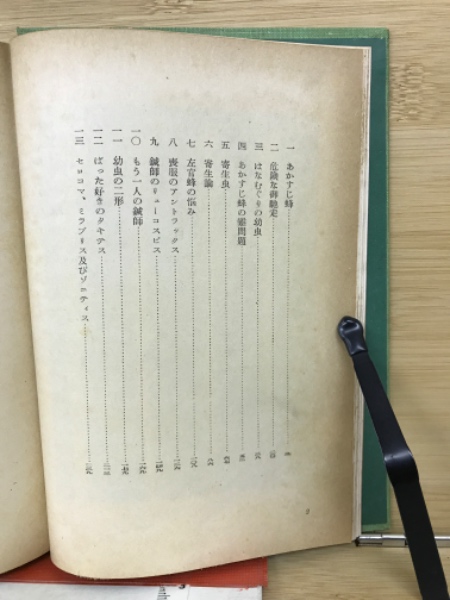 一 あかすじ蜂
二 危険な御馳走
三 はなむぐりの幼虫
四 あかすじ蜂の難問題
五 寄生虫
六 寄生論
七 左官蜂の悩み
八 喪服のアントラックス
九 鍼師のリューコスピス
一〇 もう一人の鍼師
一一 幼虫の二形
一二 ばった好きのタキテス
一三 セロコマ、ミラブリス及びゾニティス